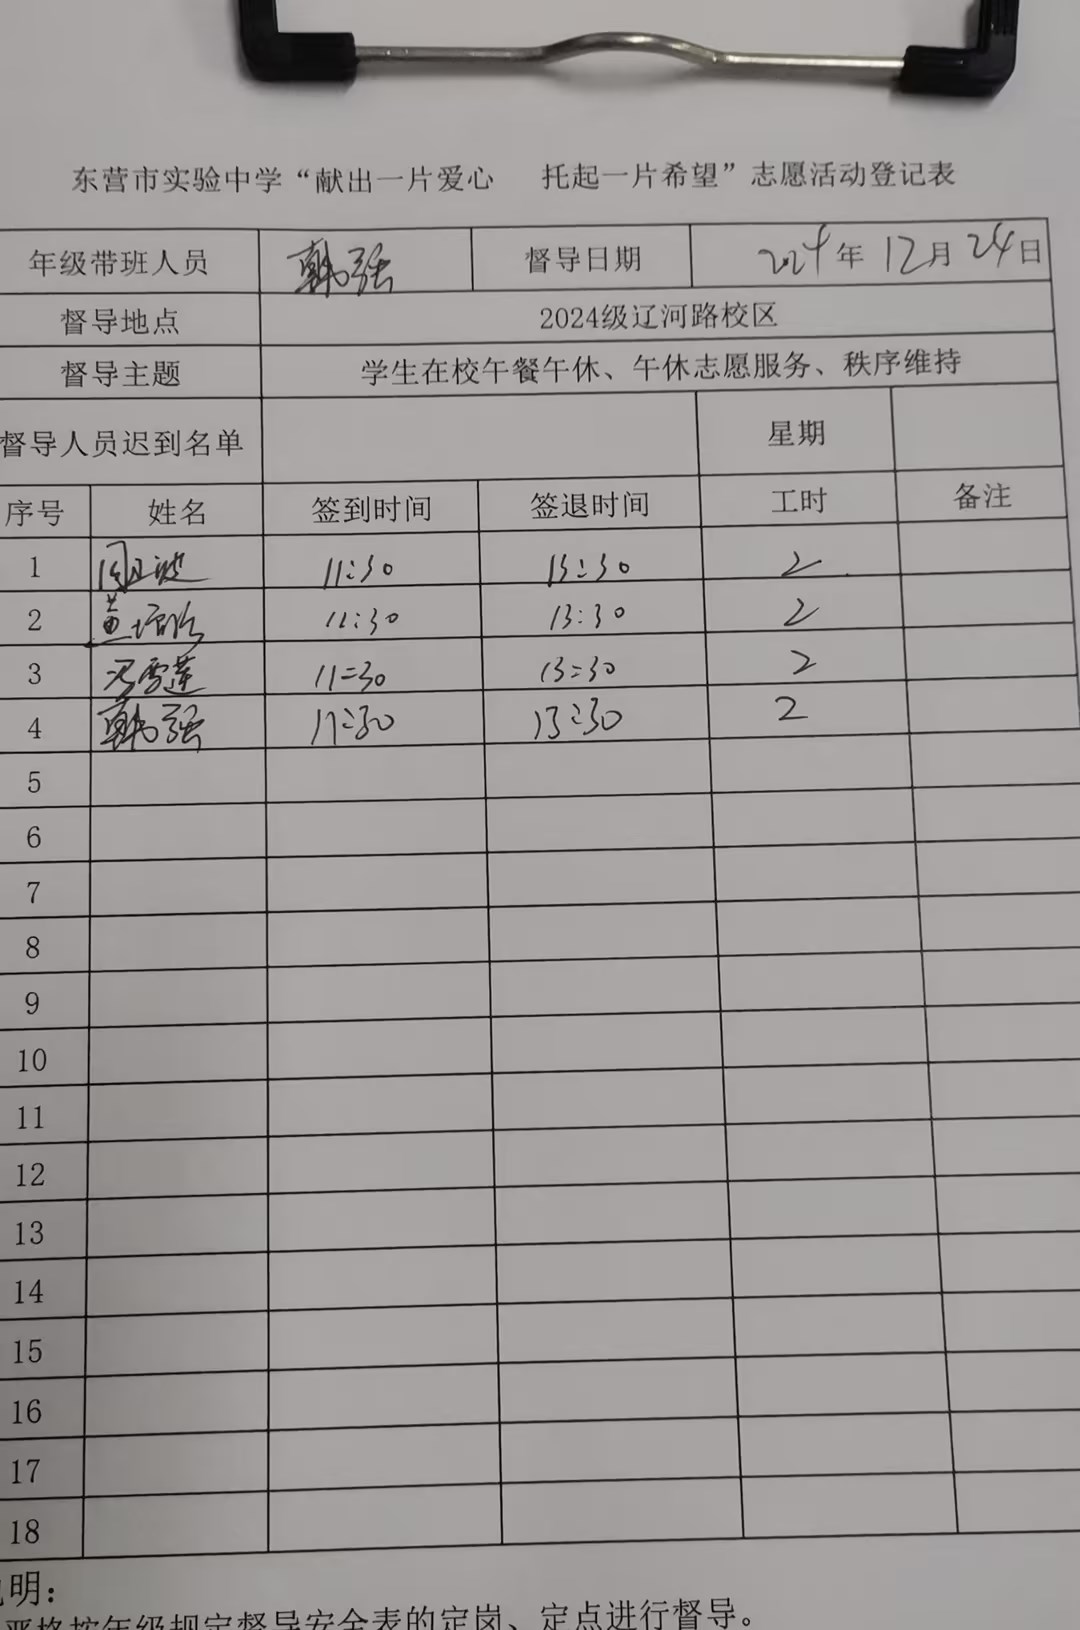 东营市实验中学“献出一片爱心 托起一片希望”志愿活动登记表
年级带班人员 韩强 督导日期 2024年12月24日
督导地点 2024级辽河路校区
督导主题 学生在校午餐午休、午休志愿服务、秩序维持
督导人员迟到名单 星期
序号 姓名 签到时间 签退时间 工时 备注
1 11:30 13:30 2
2 11:30 13:30 2
3 冯雪莲 11:30 13:30 2
4 韩强 11:30 13:30 2
5
6
7
8
9
10
11
12
13
14
15
16
17
18
明:
严格按年级规定督导安全表的定岗、定点进行督导。